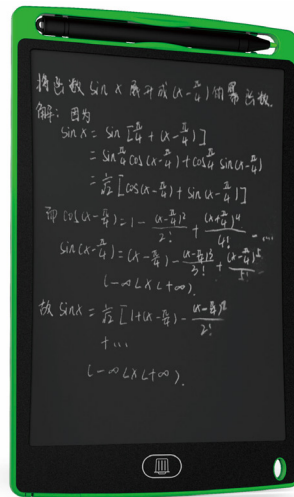 将函数 sin x 展开成 (x-π/4) 的幂函数.
解: 因为
sin x = sin [π/4 + (x-π/4)]
= sin π/4 cos(x-π/4) + cos π/4 sin(x-π/4)
= 1/√2 [cos(x-π/4) + sin(x-π/4)]
而 cos(x-π/4) = 1 - (x-π/4)²/2! + (x-π/4)⁴/4! - ...
sin(x-π/4) = (x-π/4) - (x-π/4)³/3! + (x-π/4)⁵/5!
(-∞<x<+∞).
故 sinx = 1/√2 [1+(x-π/4) - (x-π/4)²/2!
+...
(-∞<x<+∞).